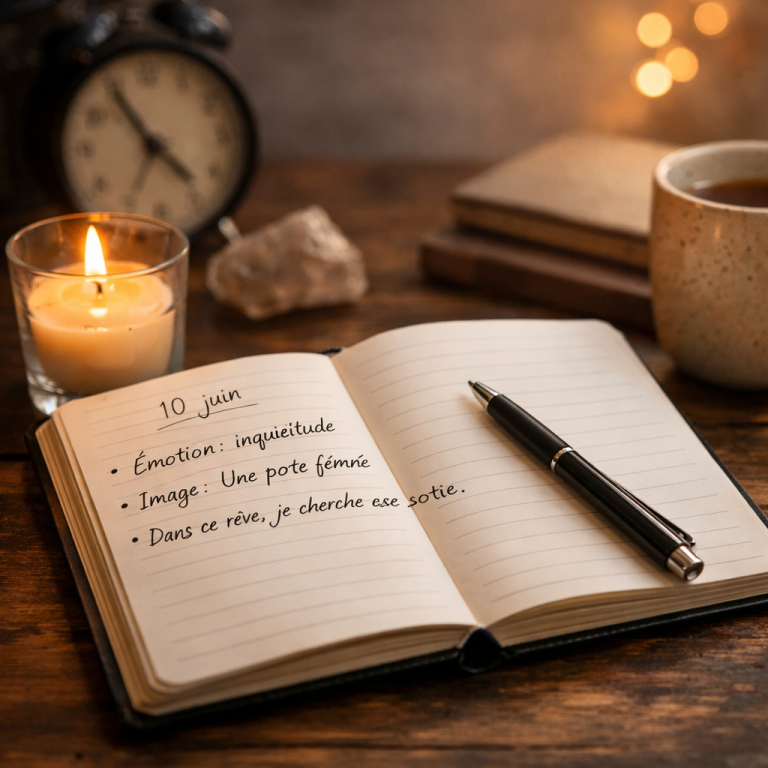 10 juin
• Émotion : inquieitude
• Image : Une pote fémrie
• Dans ce rêve, je cherche ese sotie.